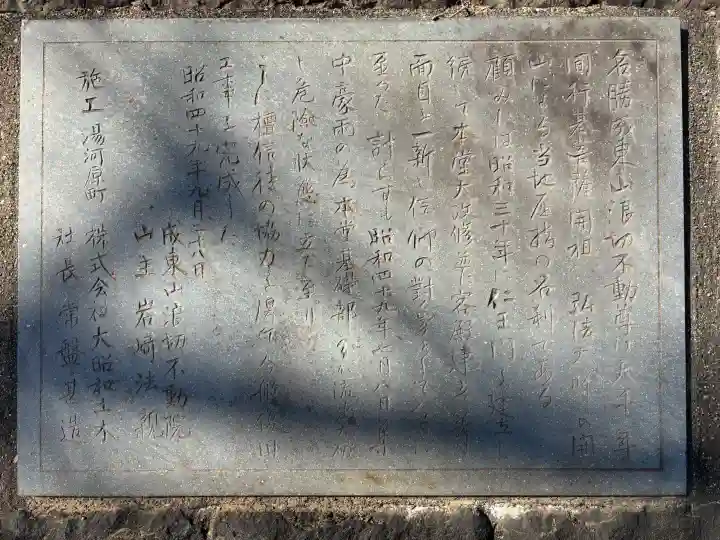 名勝成東山浪切不動尊は天平年
間行基菩薩開祖 弘法大師の開
山になる当地屈指の名刹である
顧みれば昭和三十年に仁王門を建立し
続いて本堂大改修並に客殿建立
面目を一新し信仰の対象として
至った 計らずも昭和四十九年七月八日
中豪雨の為本堂基礎部
し危険な状態に立ち至り
檀信徒の協力を得
工事を完成した
昭和四十九年九月二十八日
成東山浪切不動院
山主 岩崎法親
施工 湯河原町 株式会社大昭和土木
社長 常盤甚造